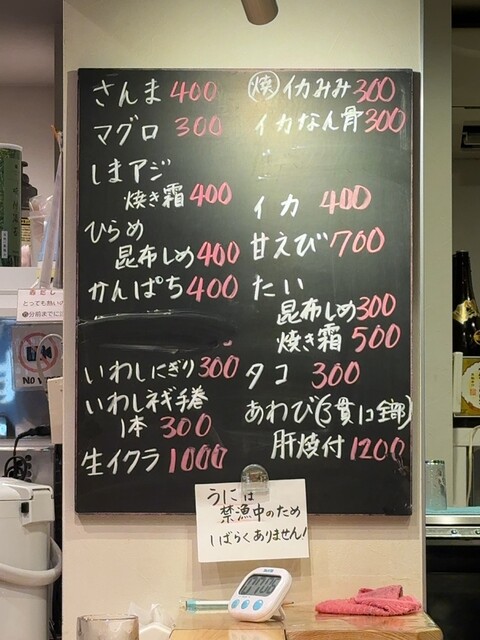 さんま 400
マグロ 300
しまアジ
焼き霜 400
ひらめ
昆布しめ 400
かんぱち 400
いわしにぎり 300
いわしネギ手巻
1本 300
生イクラ 1000
焼 イカみみ 300
イカなん骨 300
イカ 400
甘えび 700
たい
昆布しめ 300
焼き霜 500
タコ 300
あわび(3貫1コ分)
肝焼付 1200
うには
禁漁中のため
しばらくありません!
とっても熱いの
分前までに